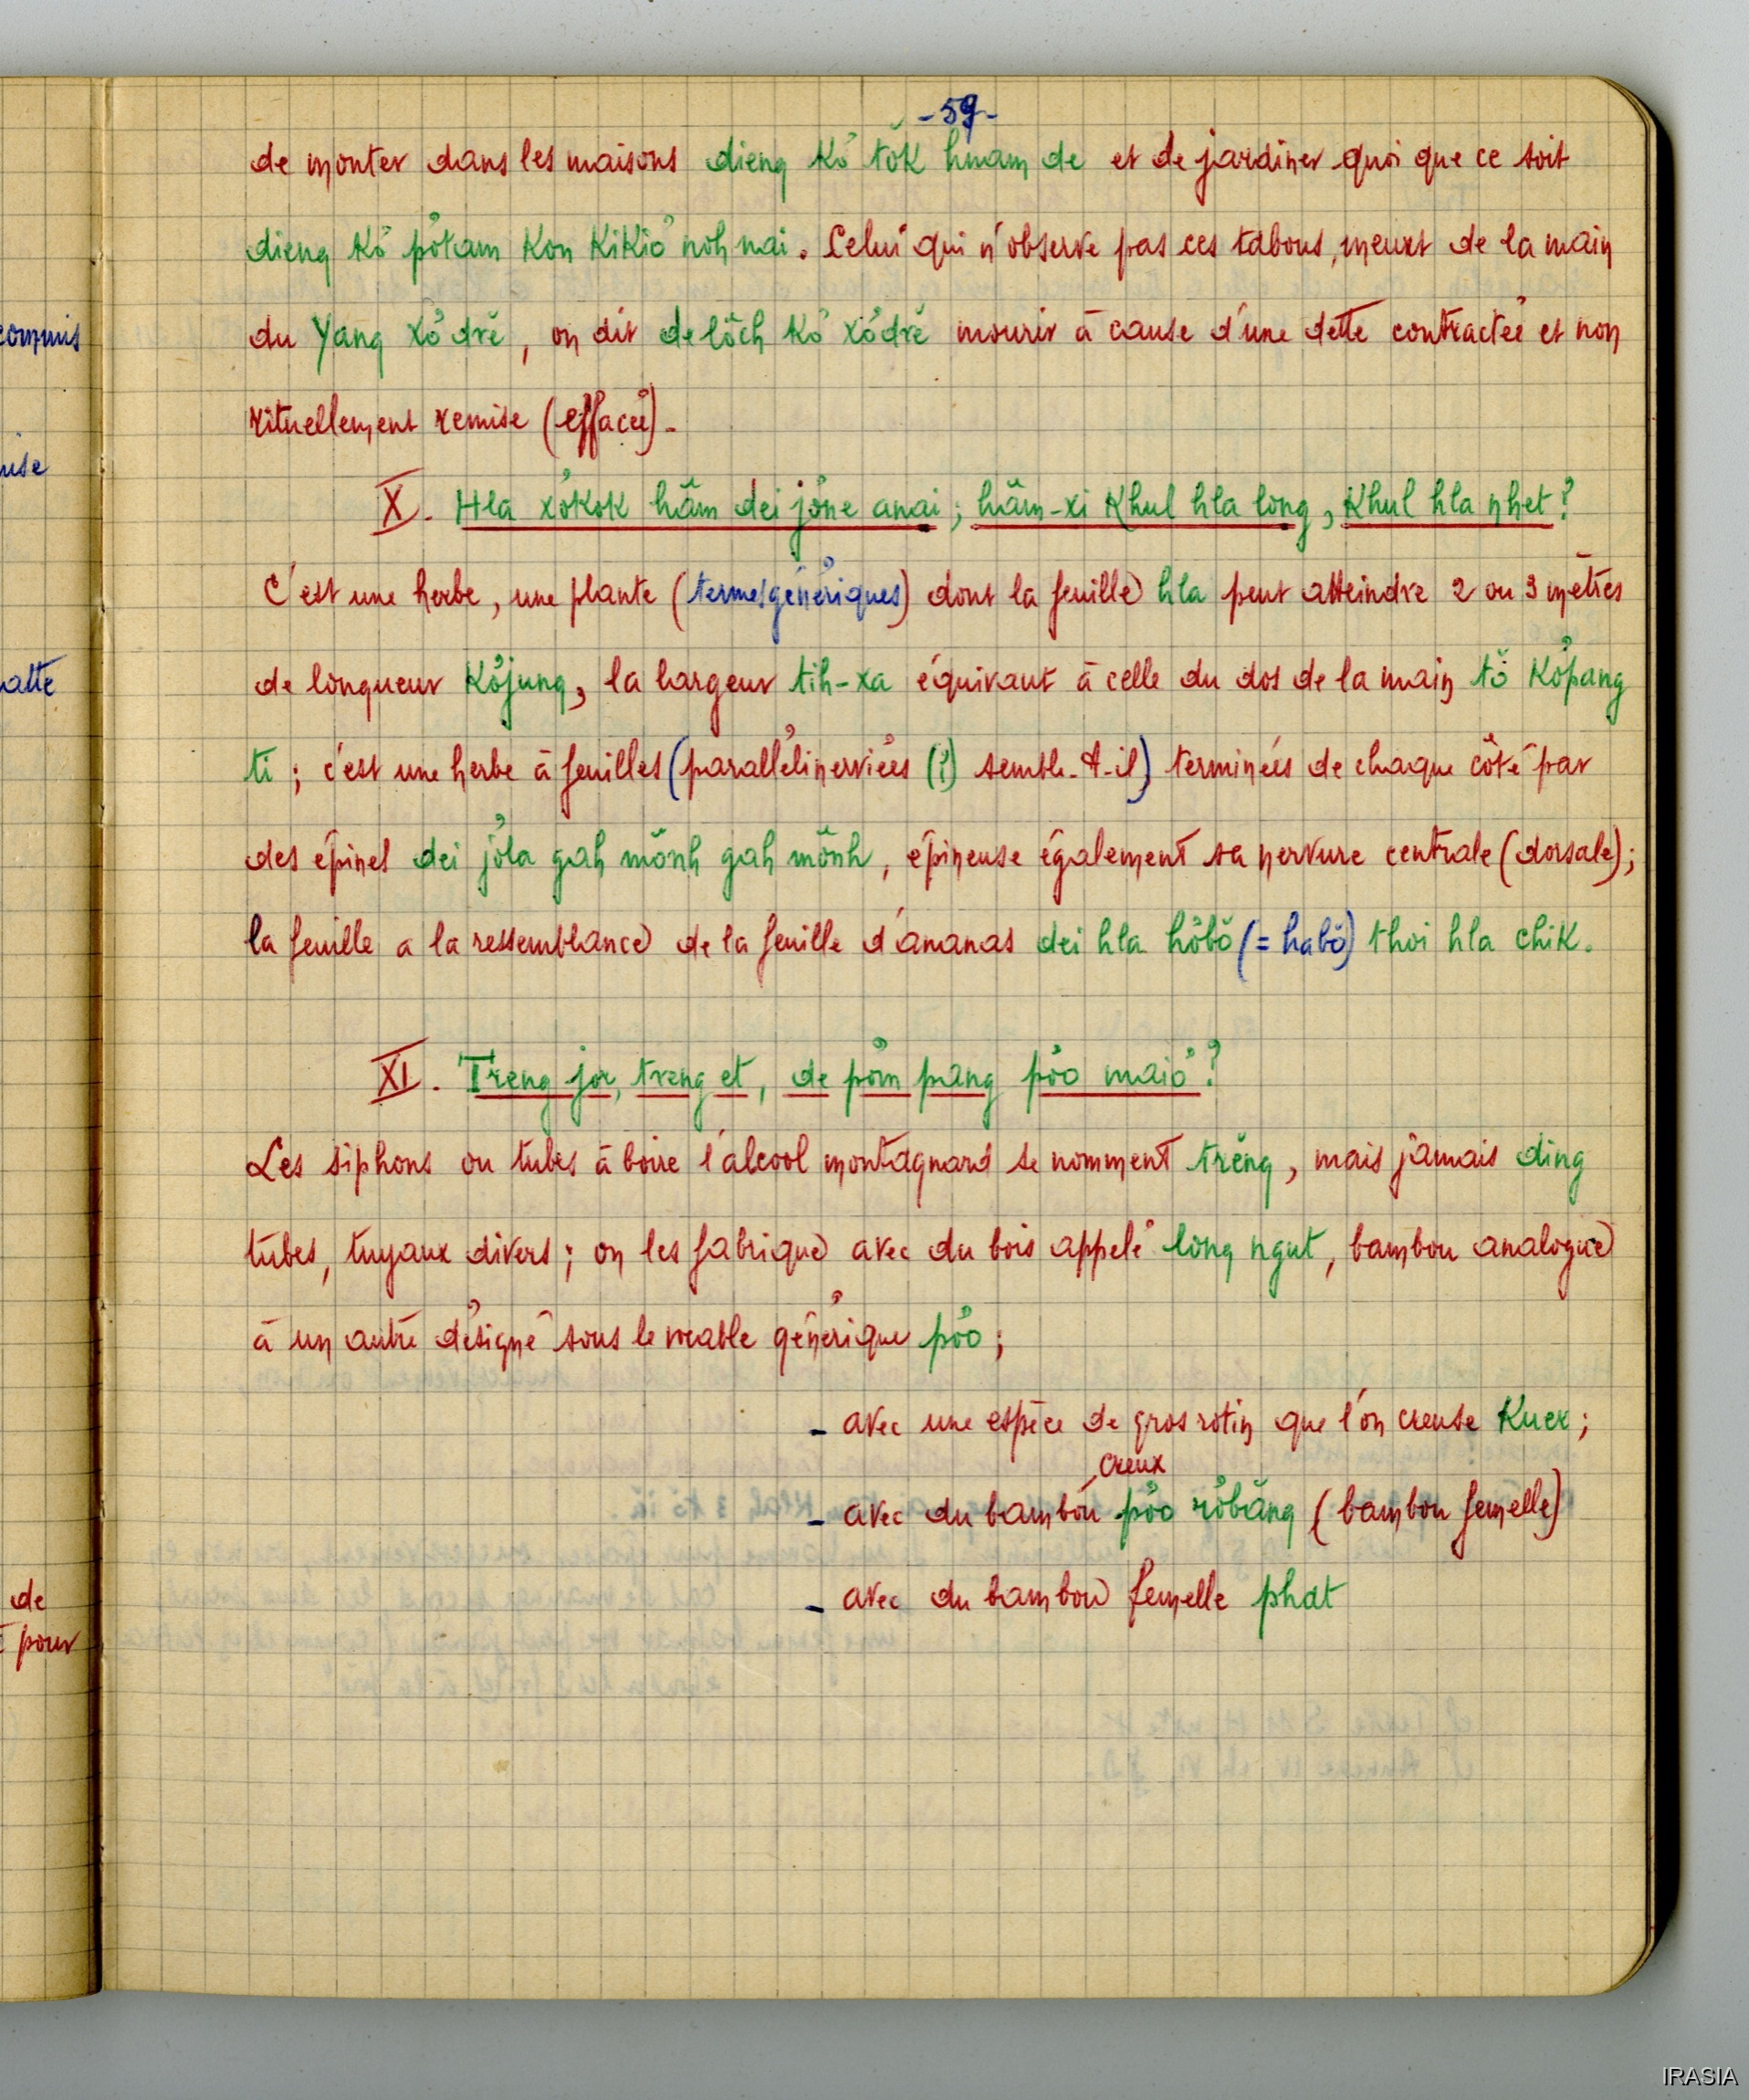 -59-
de monter dans les maisons dieng kơ tŏk hnam de et de jardiner quoi que ce soit
dieng kơ pơtam kon kikiơ noh nai. Celui qui n'observe pas ces tabous, meurt de la main
du Yang xơdrĕ, on dit de lôch kơ xơdrĕ mourir à cause d'une dette contractée et non
rituellement remise (effacée).
X. Hla xơkok hăm dei jơne anai ; hăm-xi khul hla long, khul hla nhet ?
C'est une herbe, une plante (termes génériques) dont la feuille hla peut atteindre 2 ou 3 mètres
de longueur kơjung, la largeur tih-xa équivaut à celle du dos de la main tŏ kơpang
ti ; c'est une herbe à feuilles (parallélinerviées (?) semble-t-il) terminées de chaque côté par
des épines dei jơla gah mônh gah mônh, épineuse également sa nervure centrale (dorsale) ;
la feuille a la ressemblance de la feuille d'ananas dei hla hơbŏ (= habŏ) thoi hla chik.
XI. Treng jor, treng et, de pơm pang pơo maiơ ?
Les siphons ou tubes à boire l'alcool montagnard se nomment trĕng, mais jamais ding
tubes, tuyaux divers ; on les fabrique avec du bois appelé long ngut, bambou analogue
à un autre désigné sous le vocable générique pơo ;
- avec une espèce de gros rotin que l'on creuse kuex ;
creux
- avec du bambou pơo rơbăng (bambou femelle)
- avec du bambou femelle phat
commis
de
pour
IRASIA